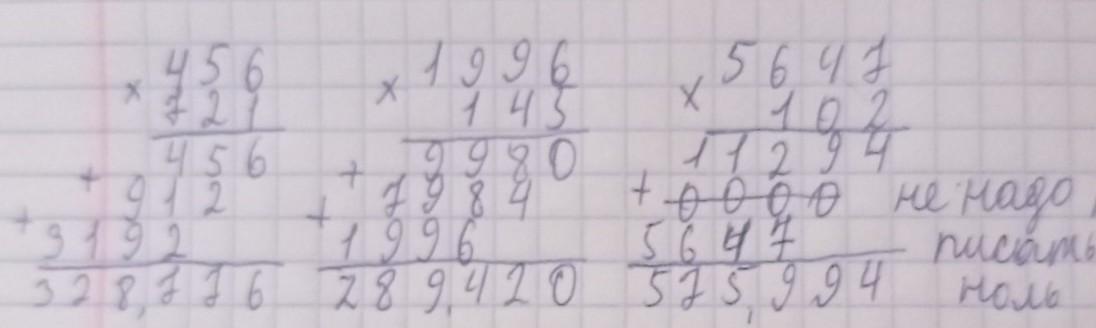 456
× 721
456
+ 912
+ 3192
328,776
1996
× 145
9980
+ 7984
+ 1996
289,420
5647
× 102
11294
+ 0000
5647
575,994
не надо
писать
ноль